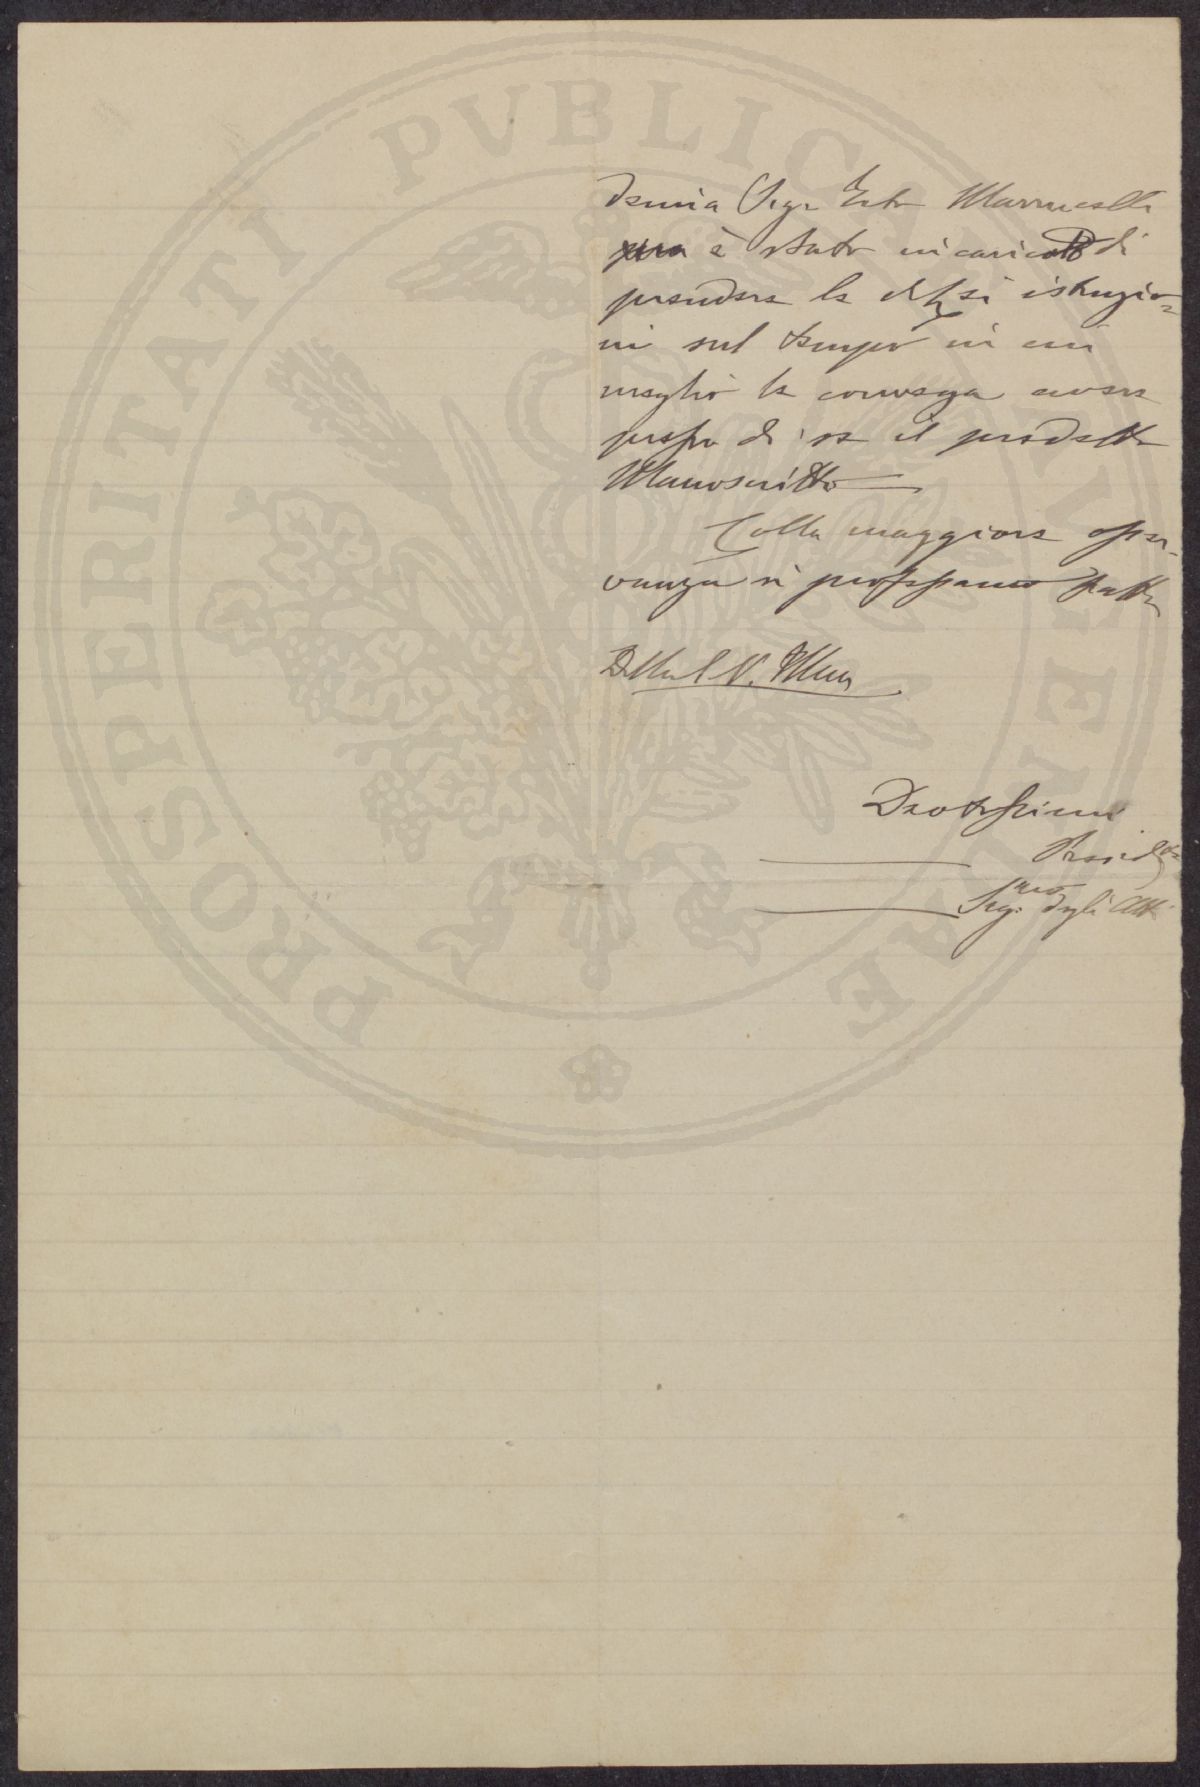 PROSPERITATI PVBLICAE AVGENDAE
demia Sigr Marrucelli
è stato incaricato di
prendere le di Lei istruzio=
ni sul tempo in cui
meglio le convenga avere
presso di se il predetto
Manoscritto
Colla maggiore osser-
vanza si professano
Della S. V. Illma
Devotissimi
Presidte
Segrio degli Atti